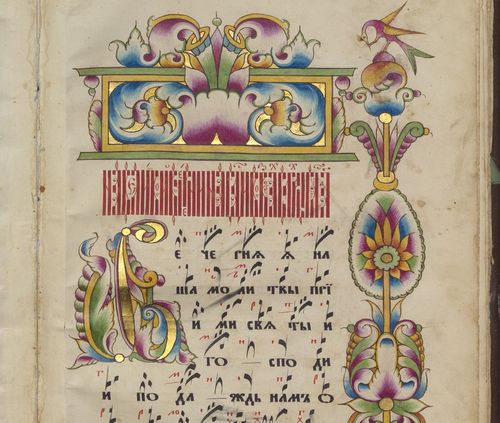 Ве че рнѧ ѧ на
ша мо ли твы прї
и ми свѧ ты и
го спо ди
и по да ждь намъ о